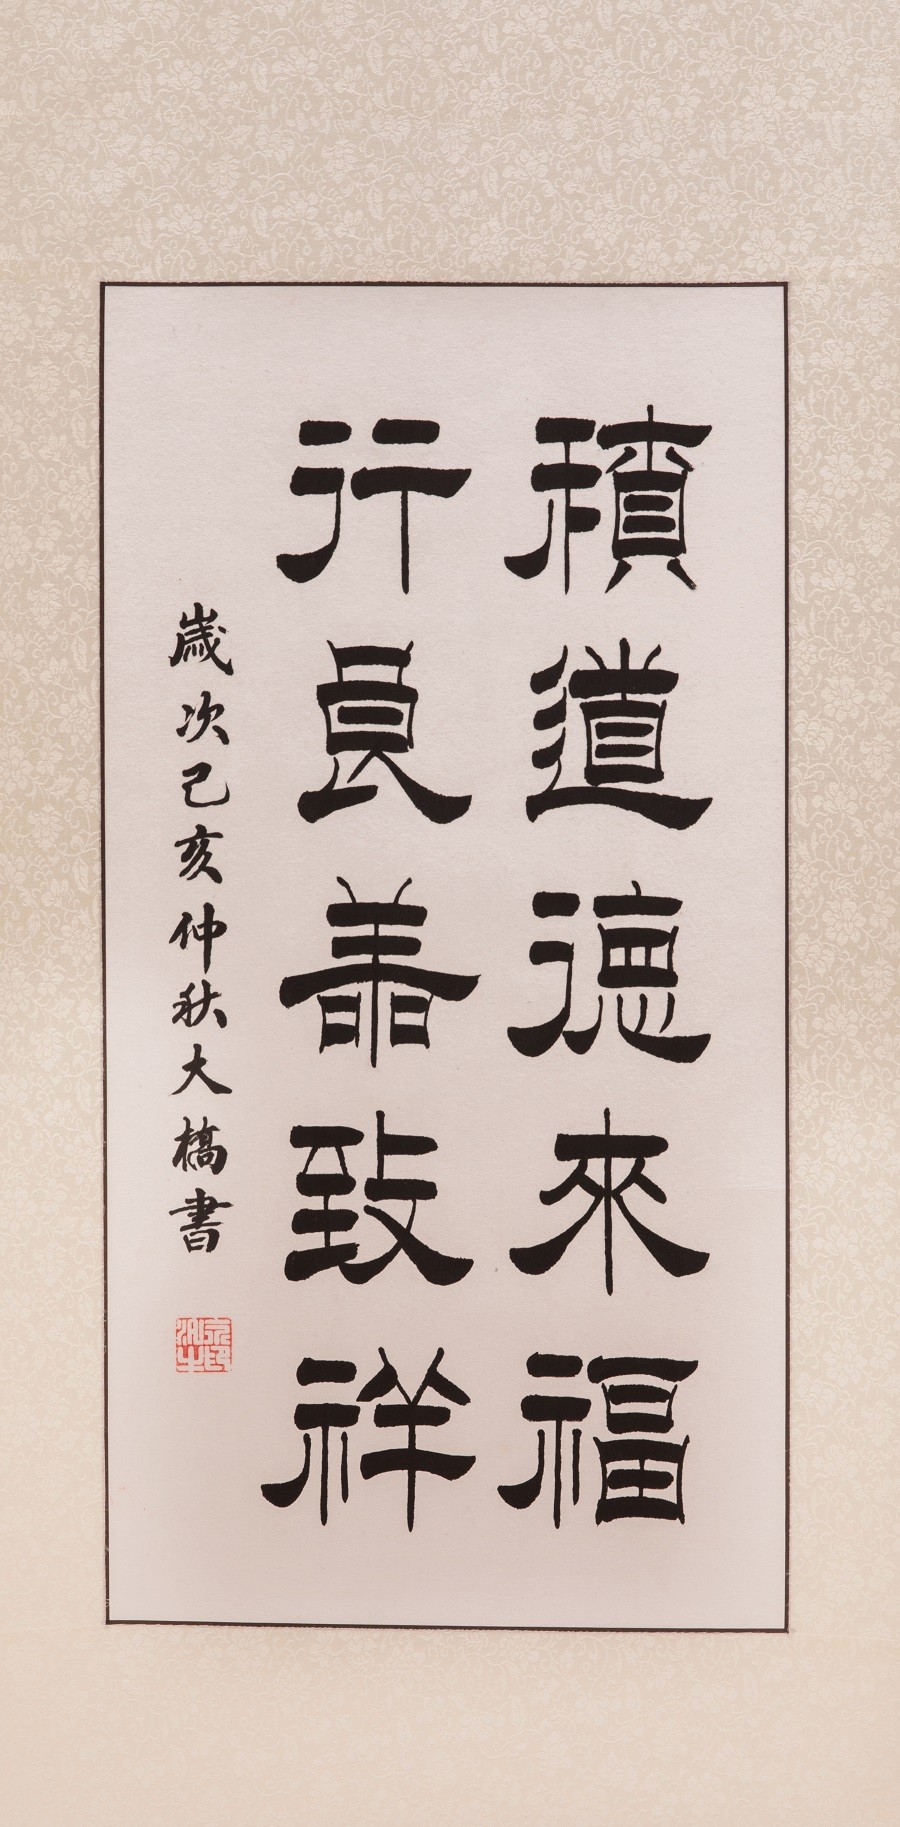 積道德來福
行良善致祥
歲次己亥仲秋大橋書